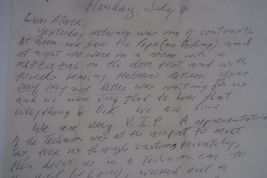 Monday, July 8
Dear Mark:
Yesterday certainly was one of contrasts
At noon we saw the Pope (no fooling) and
at night we were in a room with a
MEZUZAH on the door post and with
towels bearing Hebrew letters. Your
very very nice letter was waiting for us
and we were very glad to hear that
everything is O.K. We are fine.
We are very V.I.P. A representative
of the Technion was at the airport to meet
us, took us through customs privately,
then drove us in a Technion car to